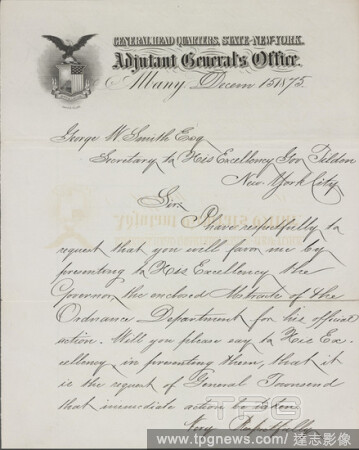 GENERAL HEAD QUARTERS, STATE NEW-YORK.
Adjutant General's Office.
Albany, Decem 15 1875.
George W Smith Esq
Secretary to His Excellency Gov Tilden
New York City
Sir
I have respectfully to
request that you will favor me by
presenting to His Excellency the
Governor the enclosed Abstracts of the
Ordnance Department for his official
action. Will you please say to His Ex-
cellency in presenting them, that it
is the request of General Townsend
that immediate action be taken
Very Respectfully
TPG
www.tpgnews.com/達志影像